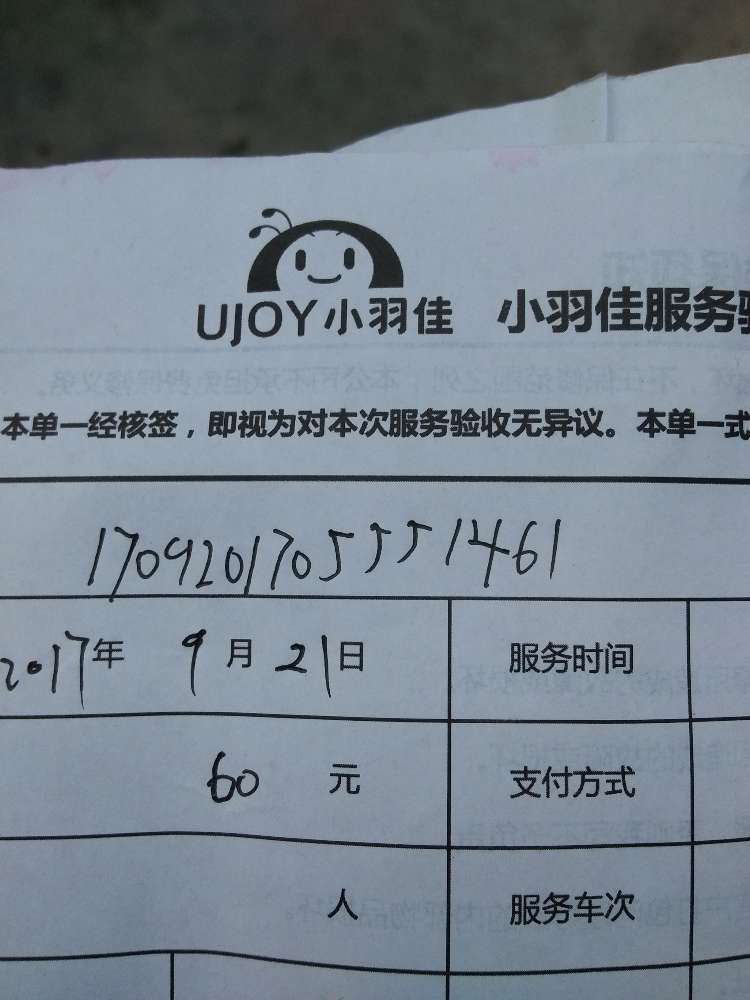 UJOY小羽佳 小羽佳服务验
本单一经核签，即视为对本次服务验收无异议。本单一式
17092017055551461
2017年 9月21日 服务时间
60 元 支付方式
人 服务车次